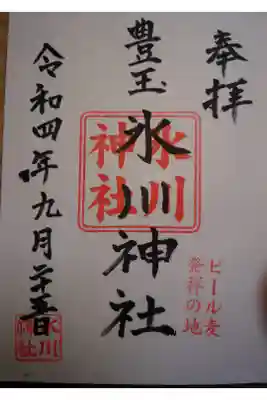 奉拝
豊玉氷川神社
氷川
神社
ビール麦
発祥の地
令和四年九月二十五日
氷川
神社